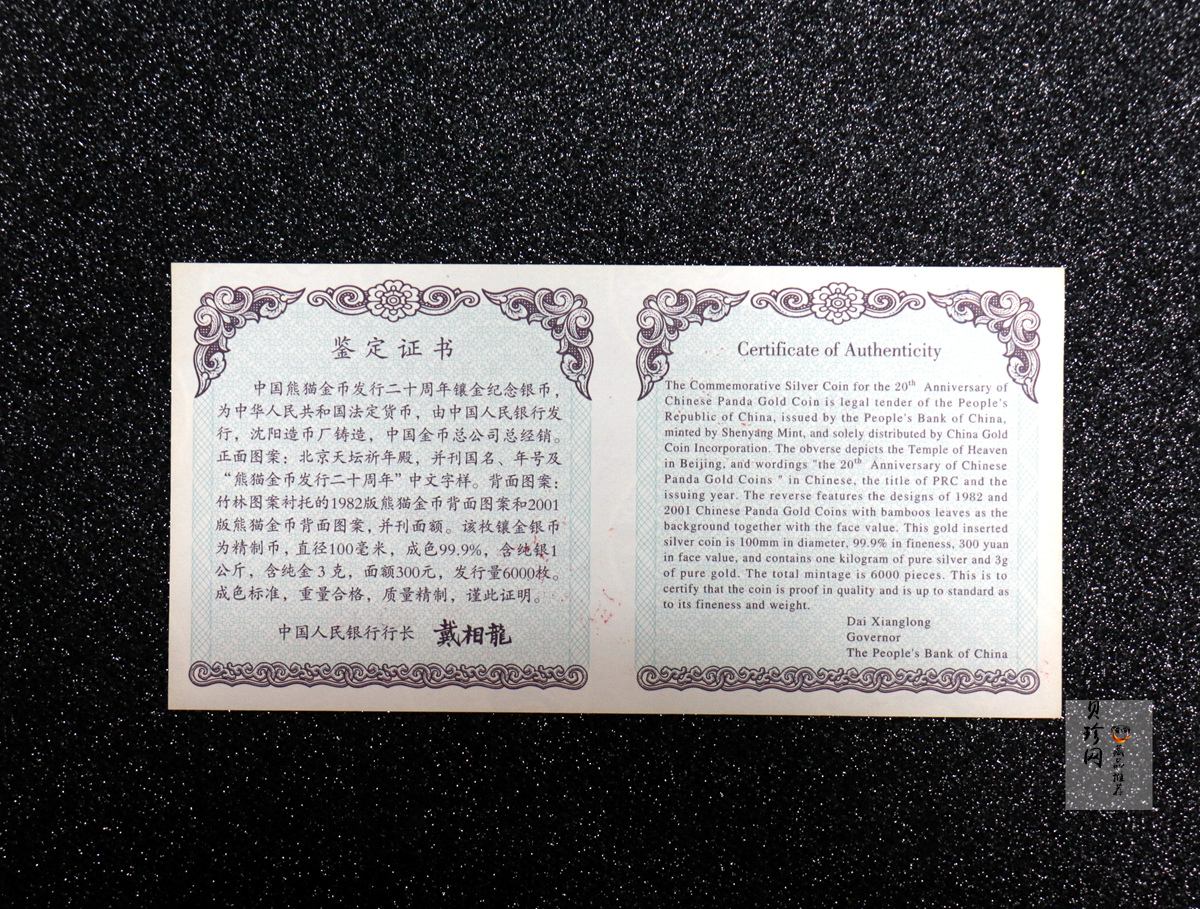 鉴定证书
中国熊猫金币发行二十周年镶金纪念银币，
为中华人民共和国法定货币，由中国人民银行发
行，沈阳造币厂铸造，中国金币总公司总经销。
正面图案：北京天坛祈年殿，并刊国名、年号及
“熊猫金币发行二十周年”中文字样。背面图案：
竹林图案衬托的1982版熊猫金币背面图案和2001
版熊猫金币背面图案，并刊面额。该枚镶金银币
为精制币，直径100毫米，成色99.9%，含纯银1
公斤，含纯金3克，面额300元，发行量6000枚。
成色标准，重量合格，质量精制，谨此证明。
中国人民银行行长 戴相龍
Certificate of Authenticity
The Commemorative Silver Coin for the 20th Anniversary of
Chinese Panda Gold Coin is legal tender of the People's
Republic of China, issued by the People's Bank of China,
minted by Shenyang Mint, and solely distributed by China Gold
Coin Incorporation. The obverse depicts the Temple of Heaven
in Beijing, and wordings "the 20th Anniversary of Chinese
Panda Gold Coins " in Chinese, the title of PRC and the
issuing year. The reverse features the designs of 1982 and
2001 Chinese Panda Gold Coins with bamboos leaves as the
background together with the face value. This gold inserted
silver coin is 100mm in diameter, 99.9% in fineness, 300 yuan
in face value, and contains one kilogram of pure silver and 3g
of pure gold. The total mintage is 6000 pieces. This is to
certify that the coin is proof in quality and is up to standard as
to its fineness and weight.
Dai Xianglong
Governor
The People's Bank of China
贝珍网
藏品推荐